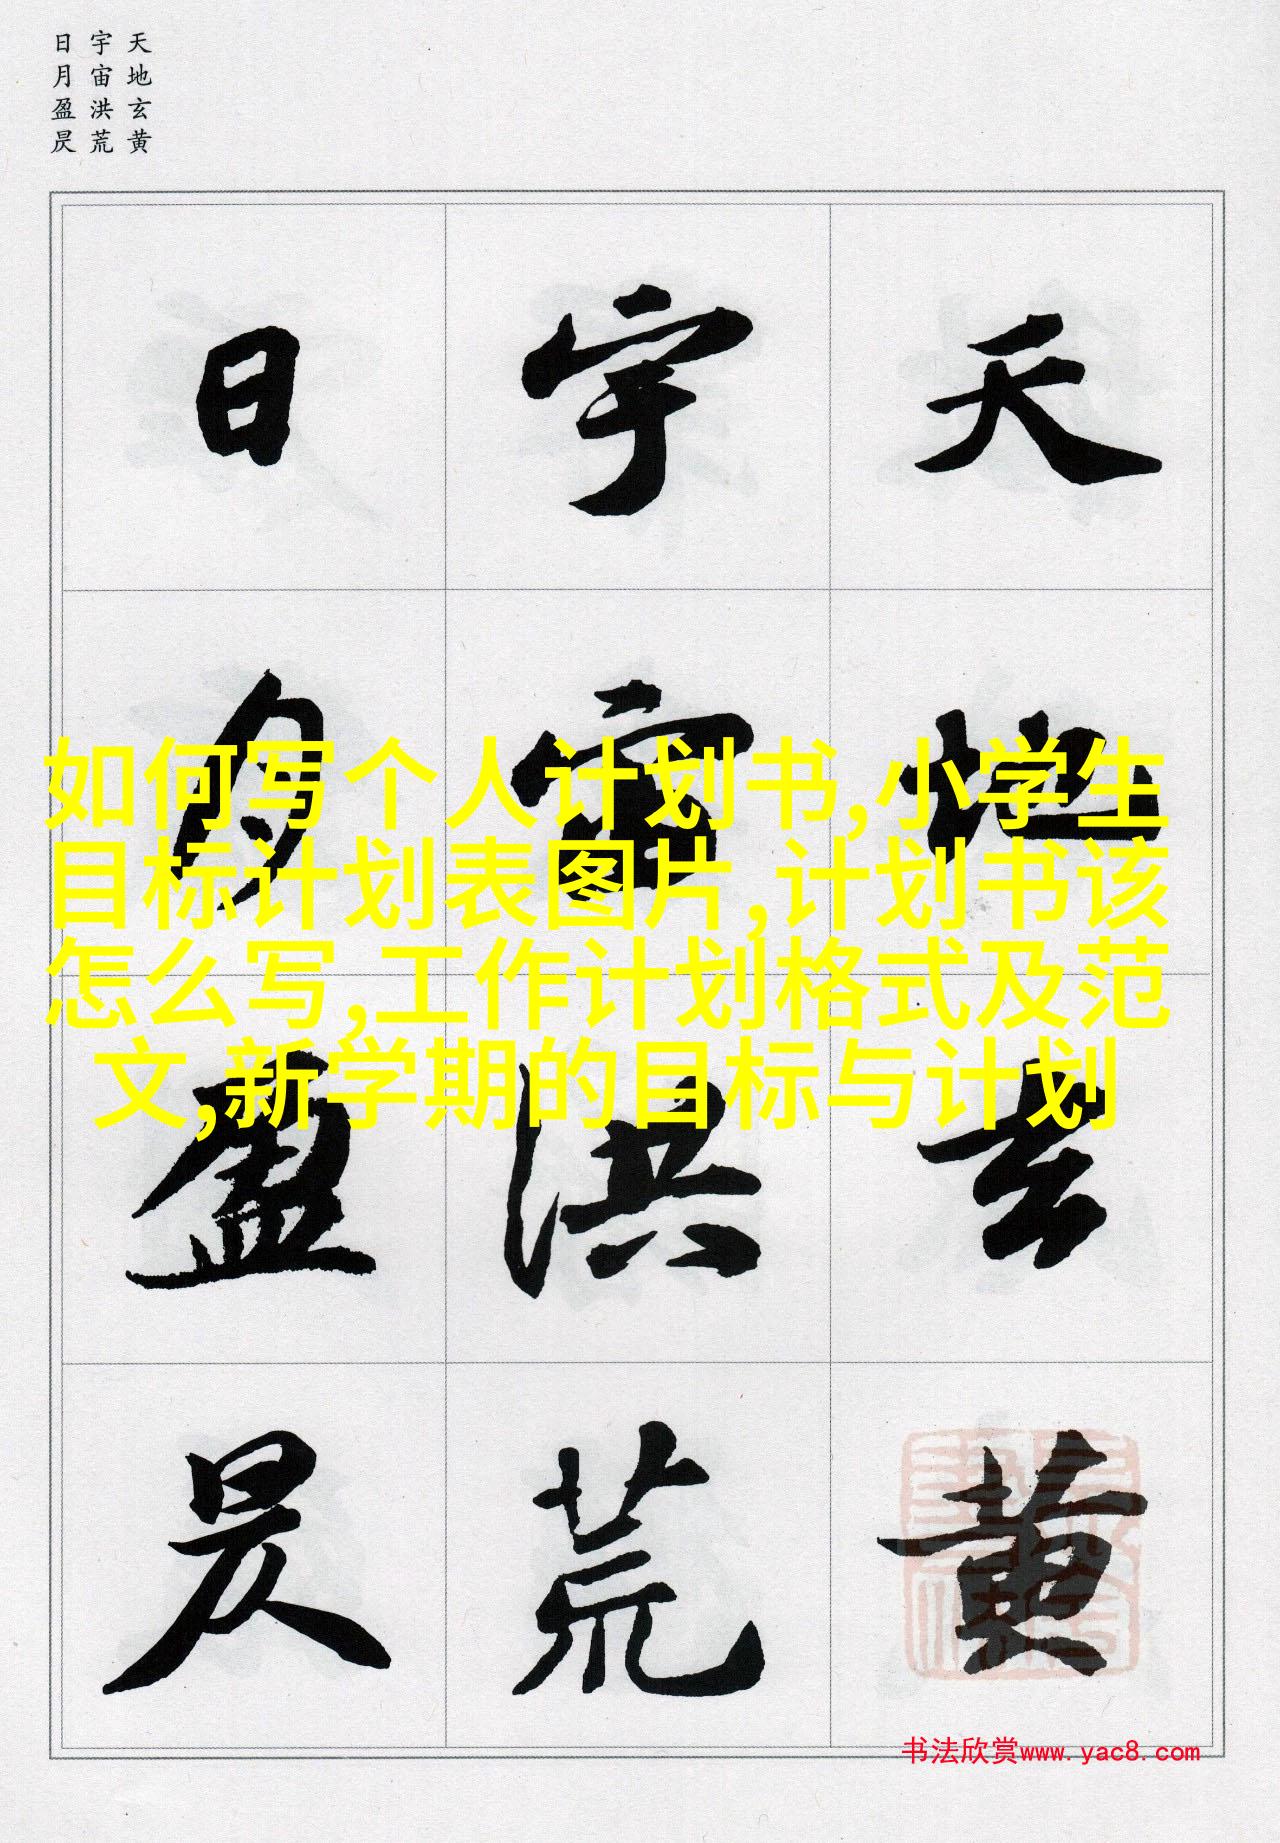 天地玄黄
宇宙洪荒
日月盈昃
天地玄黄
宇宙洪荒
日月盈昃
如何写个人计划书,小学生
目标计划表图片,计划书该
怎么写,工作计划格式及范
文,新学期的目标与计划
书法欣赏www.yac8.com